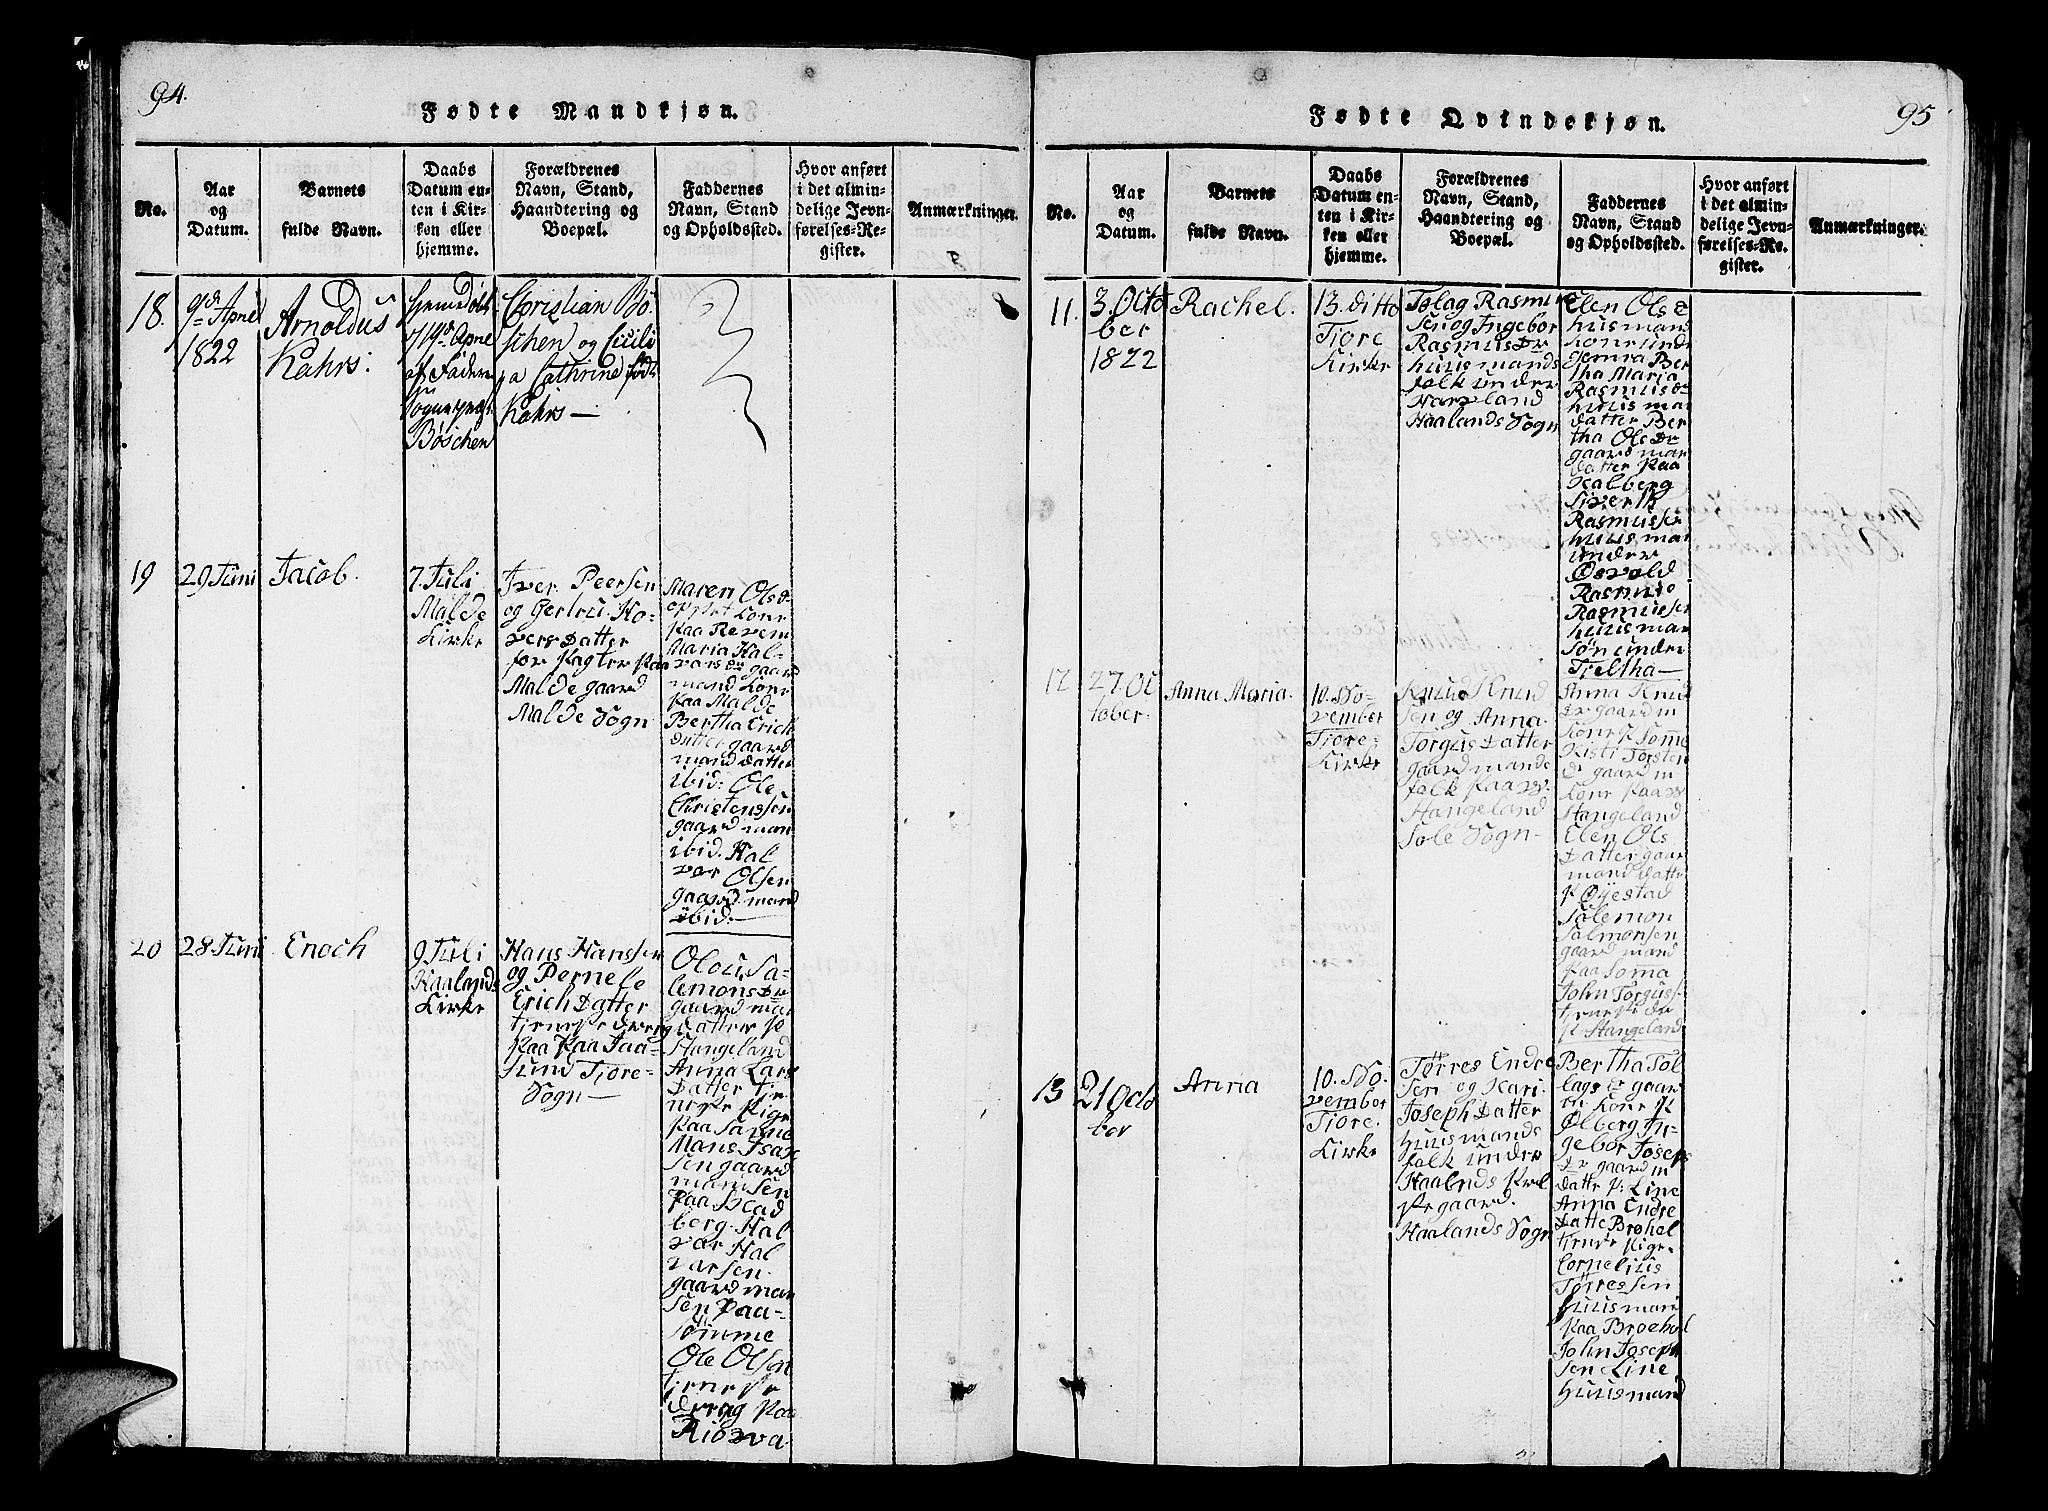 94.
Fødte Mandkjøn.
No.
Aar
og
Datum.
Barnets
fulde Navn.
Daabs
Datum en-
ten i Kir-
ken eller
hjemme.
Forældrenes
Navn, Stand,
Haandtering og
Boepæl.
Faddernes
Navn, Stand
og Opholdssted.
Hvor anført
i det almin-
delige Jevn-
førelses-Re-
gister.
Anmærkninger.
18.
9de April
1822
Arnoldus
Kahrs:
hjemedøbt
af Faderen
Böschen
Christian Bö-
schen og Cicili
a Cathrine födt
Kahrs —
19
29 Juni
Jacob.
7. Juli
Malde
Kirke
Iver Peersen
og Gertru Ho-
versDatter
for Pagter paa
Malde gaard
Malde Sogn
Maren Olsd
Kone
paa Revem
Maria Hal-
vors Dr gaard
mand Kone
paa Malde
Bertha Erich
datter gaard
mand datter
ibid: Ole
Christenssen
gaard man
ibid. Hal
vor Olsen
gaard mand
ibid.
20
28 Juni
Enoch
9 Juli
Haalands
Kirke
Hans Hanssen
og Pernele
ErichDatter
paa
Sund Tiore-
Sogn —
Olou Sa-
lemons Dr
gaard man
datter p
Stangeland
Anna Lars
Datter tje
neste Pige
paa Sømme
Mans Isax
sen gaard
man Sen
paa
berg. Hal
vor Hal
varsen
gaard man
sen paa-
Sömme
Ole Olsen
tjeneste
dreng paa
Riosva
95
Fødte Qvindekjøn.
No.
Aar
og
Datum.
Barnets
fulde Navn.
Daabs
Datum en-
ten i Kir-
ken eller
hjemme.
Forældrenes
Navn, Stand,
Haandtering og
Boepæl.
Faddernes
Navn, Stand
og Opholdssted.
Hvor anført
i det almin-
delige Jevn-
førelses-Re-
gister.
Anmærkninger.
11.
3. Octo
ber
1822
Rachel.
13. ditto
Tiore
Kirke
Tolag Rasmu
sen og Ingebor
Rasmus Dr
huusmands
folk under
Haalands Sogn
Elen Ols d
husmans
kone under
Ber
tha Maria
Rasmus d
huus ma
datter Ber
tha Ols Dr
gaard man
datter paa
Kalberg
Sivert
Rasmussen
huus man
under
Osvold
Rasmus
Rasmussen
huus man
Søn under
Tjeltha —
12
27 Oc
tober.
Anna Maria.
10. No-
vember
Tiore-
Kirke
Knud Knud
sen og Anna
TorgusDatter
gaard mande
folk paa
Stangeland
Sole Sogn-
Anna Knud
Dr gaard m
Kone p Sømme
Kisti Torsten
D gaard m
Kone paa
Stangeland
Elen Ols
Datter gaar
mand datte
p Øyestad
Solemon
Salmonsen
gaard mand
paa Somma
John Torguss
tjeneste dr
p Stangeland
13
21 Octo
ber
Anna
10. No.
vember
Tiore.
Kirke
Tørres Endre
sen og Kari
JosephDatter
Huusmands
folk under
Haalands Præ
ste gaard.
Haalands Sogn
Bertha Tol
lags Dr gaar
m Kone p
Ølberg In-
gebor Joseps
Dr gaard m
datte p: Line
Anna Endre
Datte Brohel
tjenste Pige.
Cornelius
Tørressen
Huusman
paa Broehol
John Joseph
sen Line
Huusmand